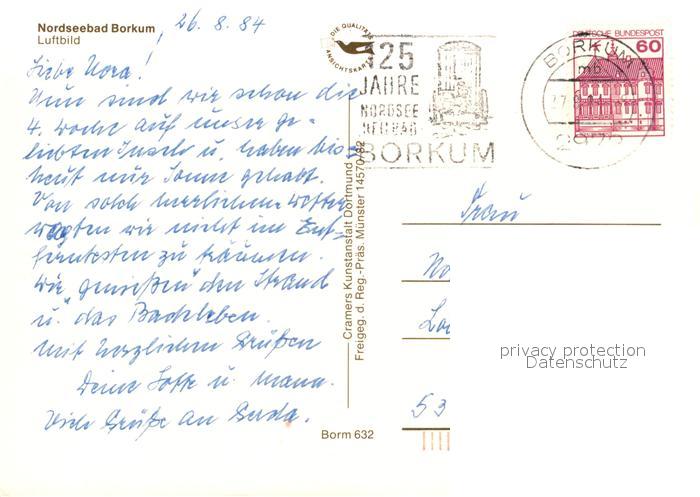 Nordseebad Borkum
Luftbild
, 26.8.84
Liebe Nora!
Nun sind wir schon die
4. Woche auf unsrer ge-
liebten Insel u. haben bis-
heut nur Sonne gehabt.
Von solch herrlichem Wetter
wagten wir nicht im Ent-
ferntesten zu träumen.
Wir genießen den Strand
u. das Badeleben.
Mit herzlichen Grüßen
Deine Lotte u. Mann.
Viele Grüße an Gerda.
DIE QUALITÄTS
ANSICHTSKARTE
125
JAHRE
NORDSEE
HEILBAD
BORKUM
DEUTSCHE BUNDESPOST
60
BORKUM
mb
2972
Cramers Kunstanstalt Dortmund
Freigeg. d. Reg.-Präs. Münster 14570/82
Borm 632
Frau
No
53
privacy protection
Datenschutz